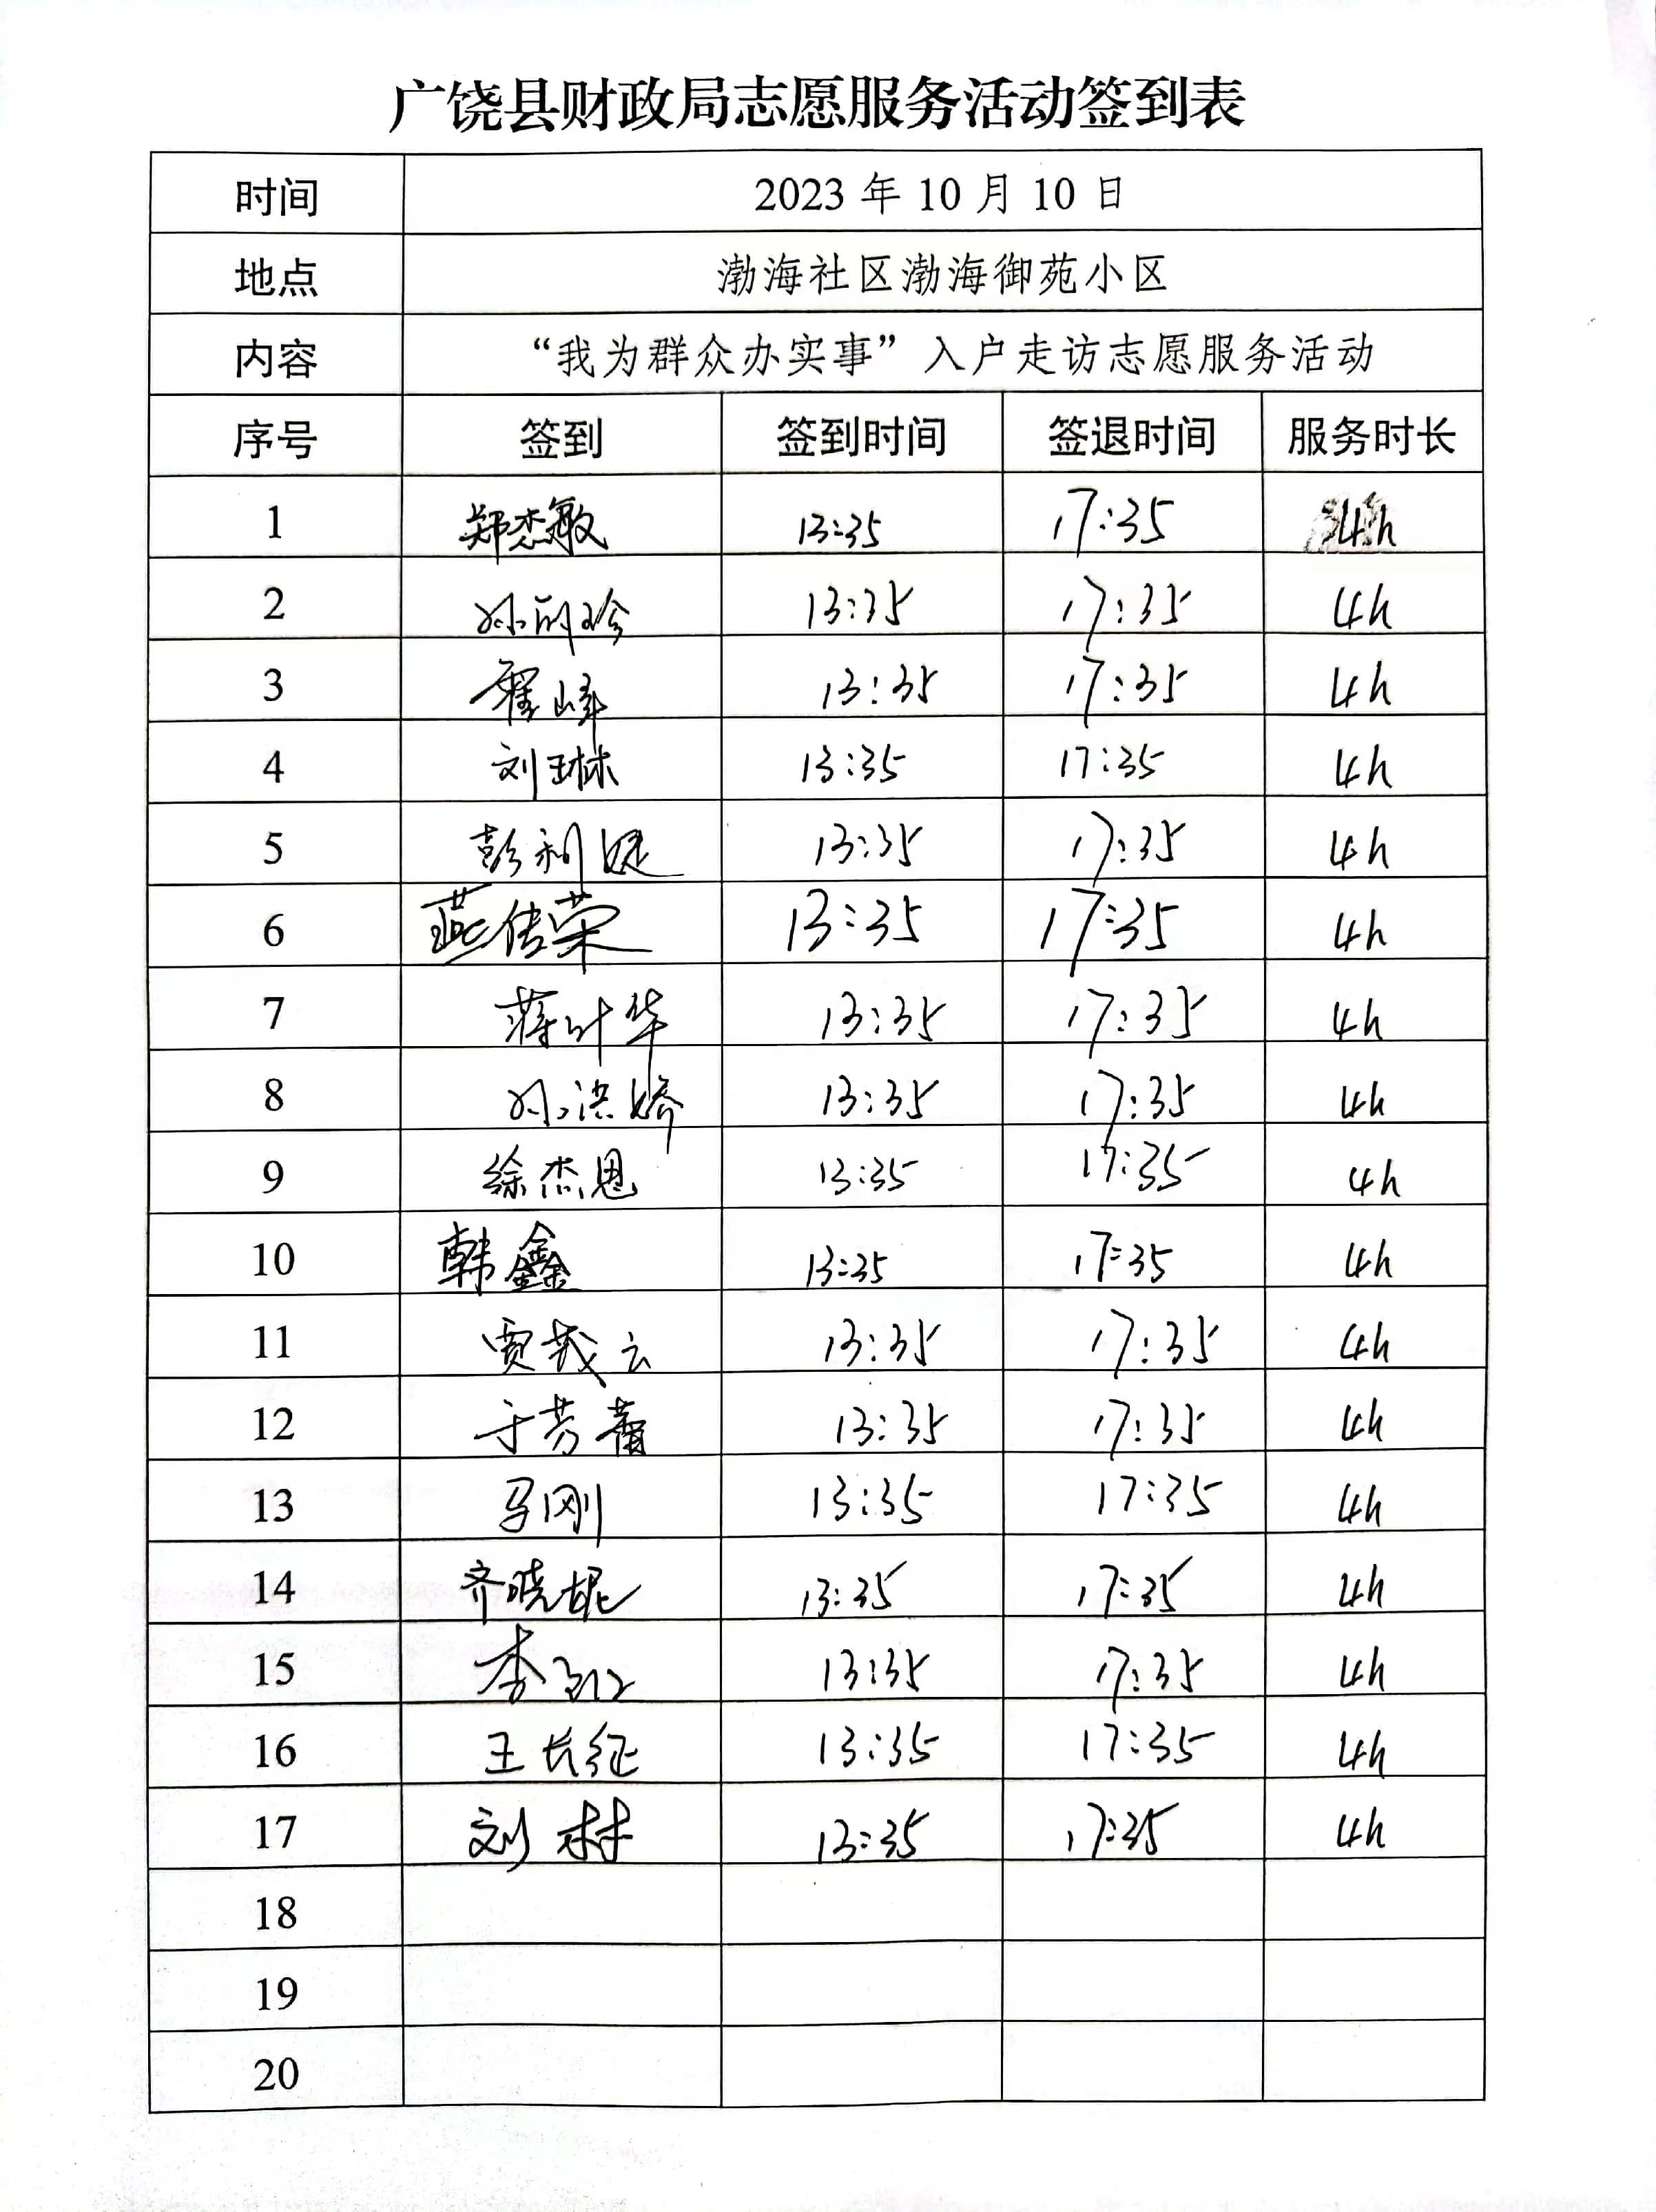 广饶县财政局志愿服务活动签到表
时间 2023 年 10 月 10 日
地点 渤海社区渤海御苑小区
内容 “我为群众办实事”入户走访志愿服务活动
序号 签到 签到时间 签退时间 服务时长
1 郑杰敏 13:35 17:35 4h
2 13:35 17:35 4h
3 翟峰 13:35 17:35 4h
4 刘琳 13:35 17:35 4h
5 彭利媞 13:35 17:35 4h
6 燕传荣 13:35 17:35 4h
7 蒋叶华 13:35 17:35 4h
8 孙洪娇 13:35 17:35 4h
9 徐杰恩 13:35 17:35 4h
10 韩鑫 13:35 17:35 4h
11 13:35 17:35 4h
12 于芳蕾 13:35 17:35 4h
13 马刚 13:35 17:35 4h
14 齐晓琨 13:35 17:35 4h
15 13:35 17:35 4h
16 王长征 13:35 17:35 4h
17 刘林 13:35 17:35 4h
18
19
20